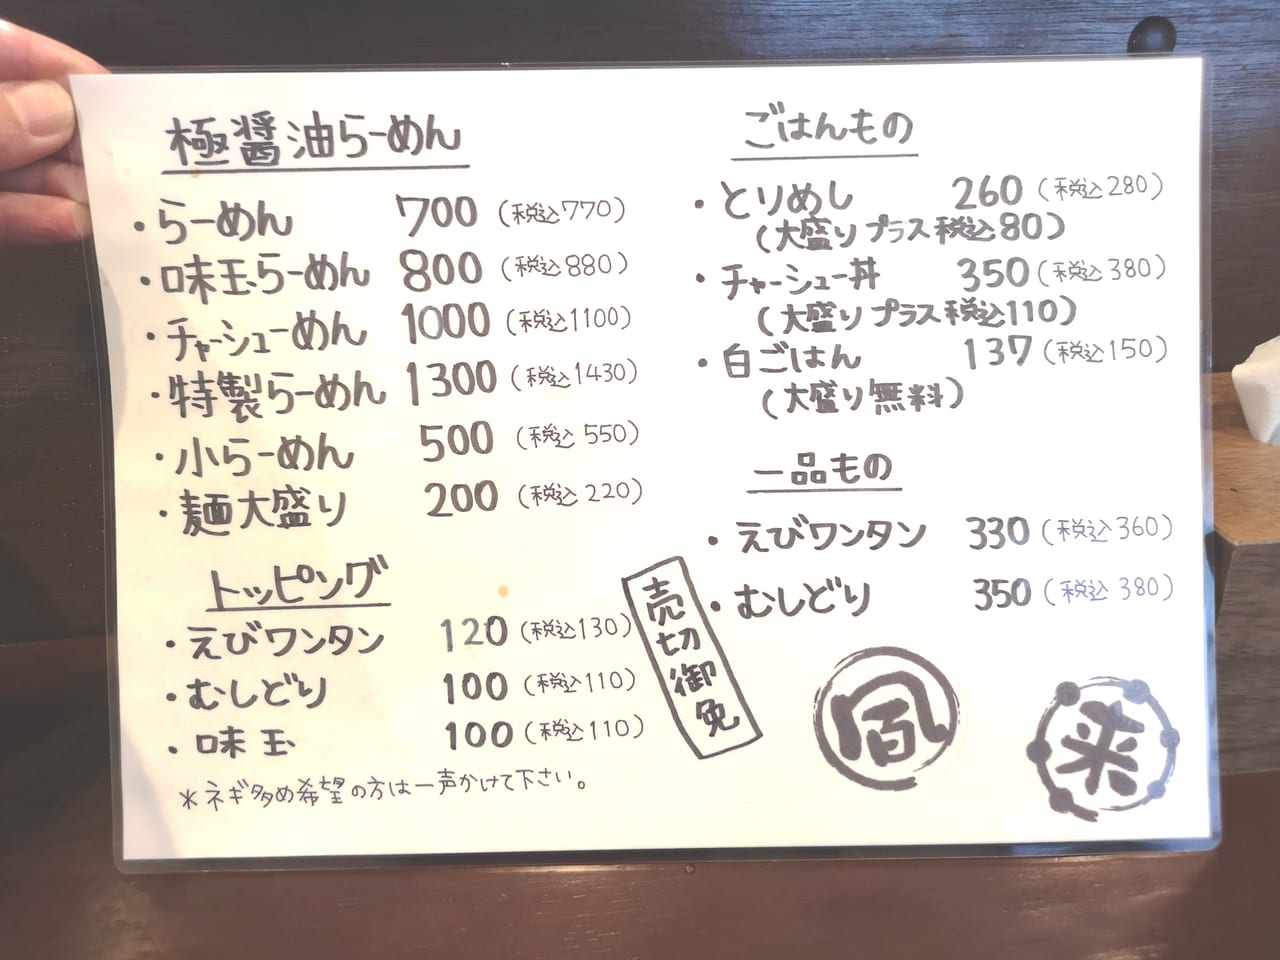 極醤油らーめん
・らーめん 700 (税込770)
・味玉らーめん 800 (税込880)
・チャーシューめん 1000 (税込1100)
・特製らーめん 1300 (税込1430)
・小らーめん 500 (税込550)
・麺大盛り 200 (税込220)
トッピング
・えびワンタン 120 (税込130)
・むしどり 100 (税込110)
・味玉 100 (税込110)
*ネギ多め希望の方は一声かけて下さい。
売切御免
ごはんもの
・とりめし 260 (税込280)
(大盛りプラス税込80)
・チャーシュー丼 350 (税込380)
(大盛りプラス税込110)
・白ごはん 137 (税込150)
(大盛り無料)
一品もの
・えびワンタン 330 (税込360)
・むしどり 350 (税込380)
来